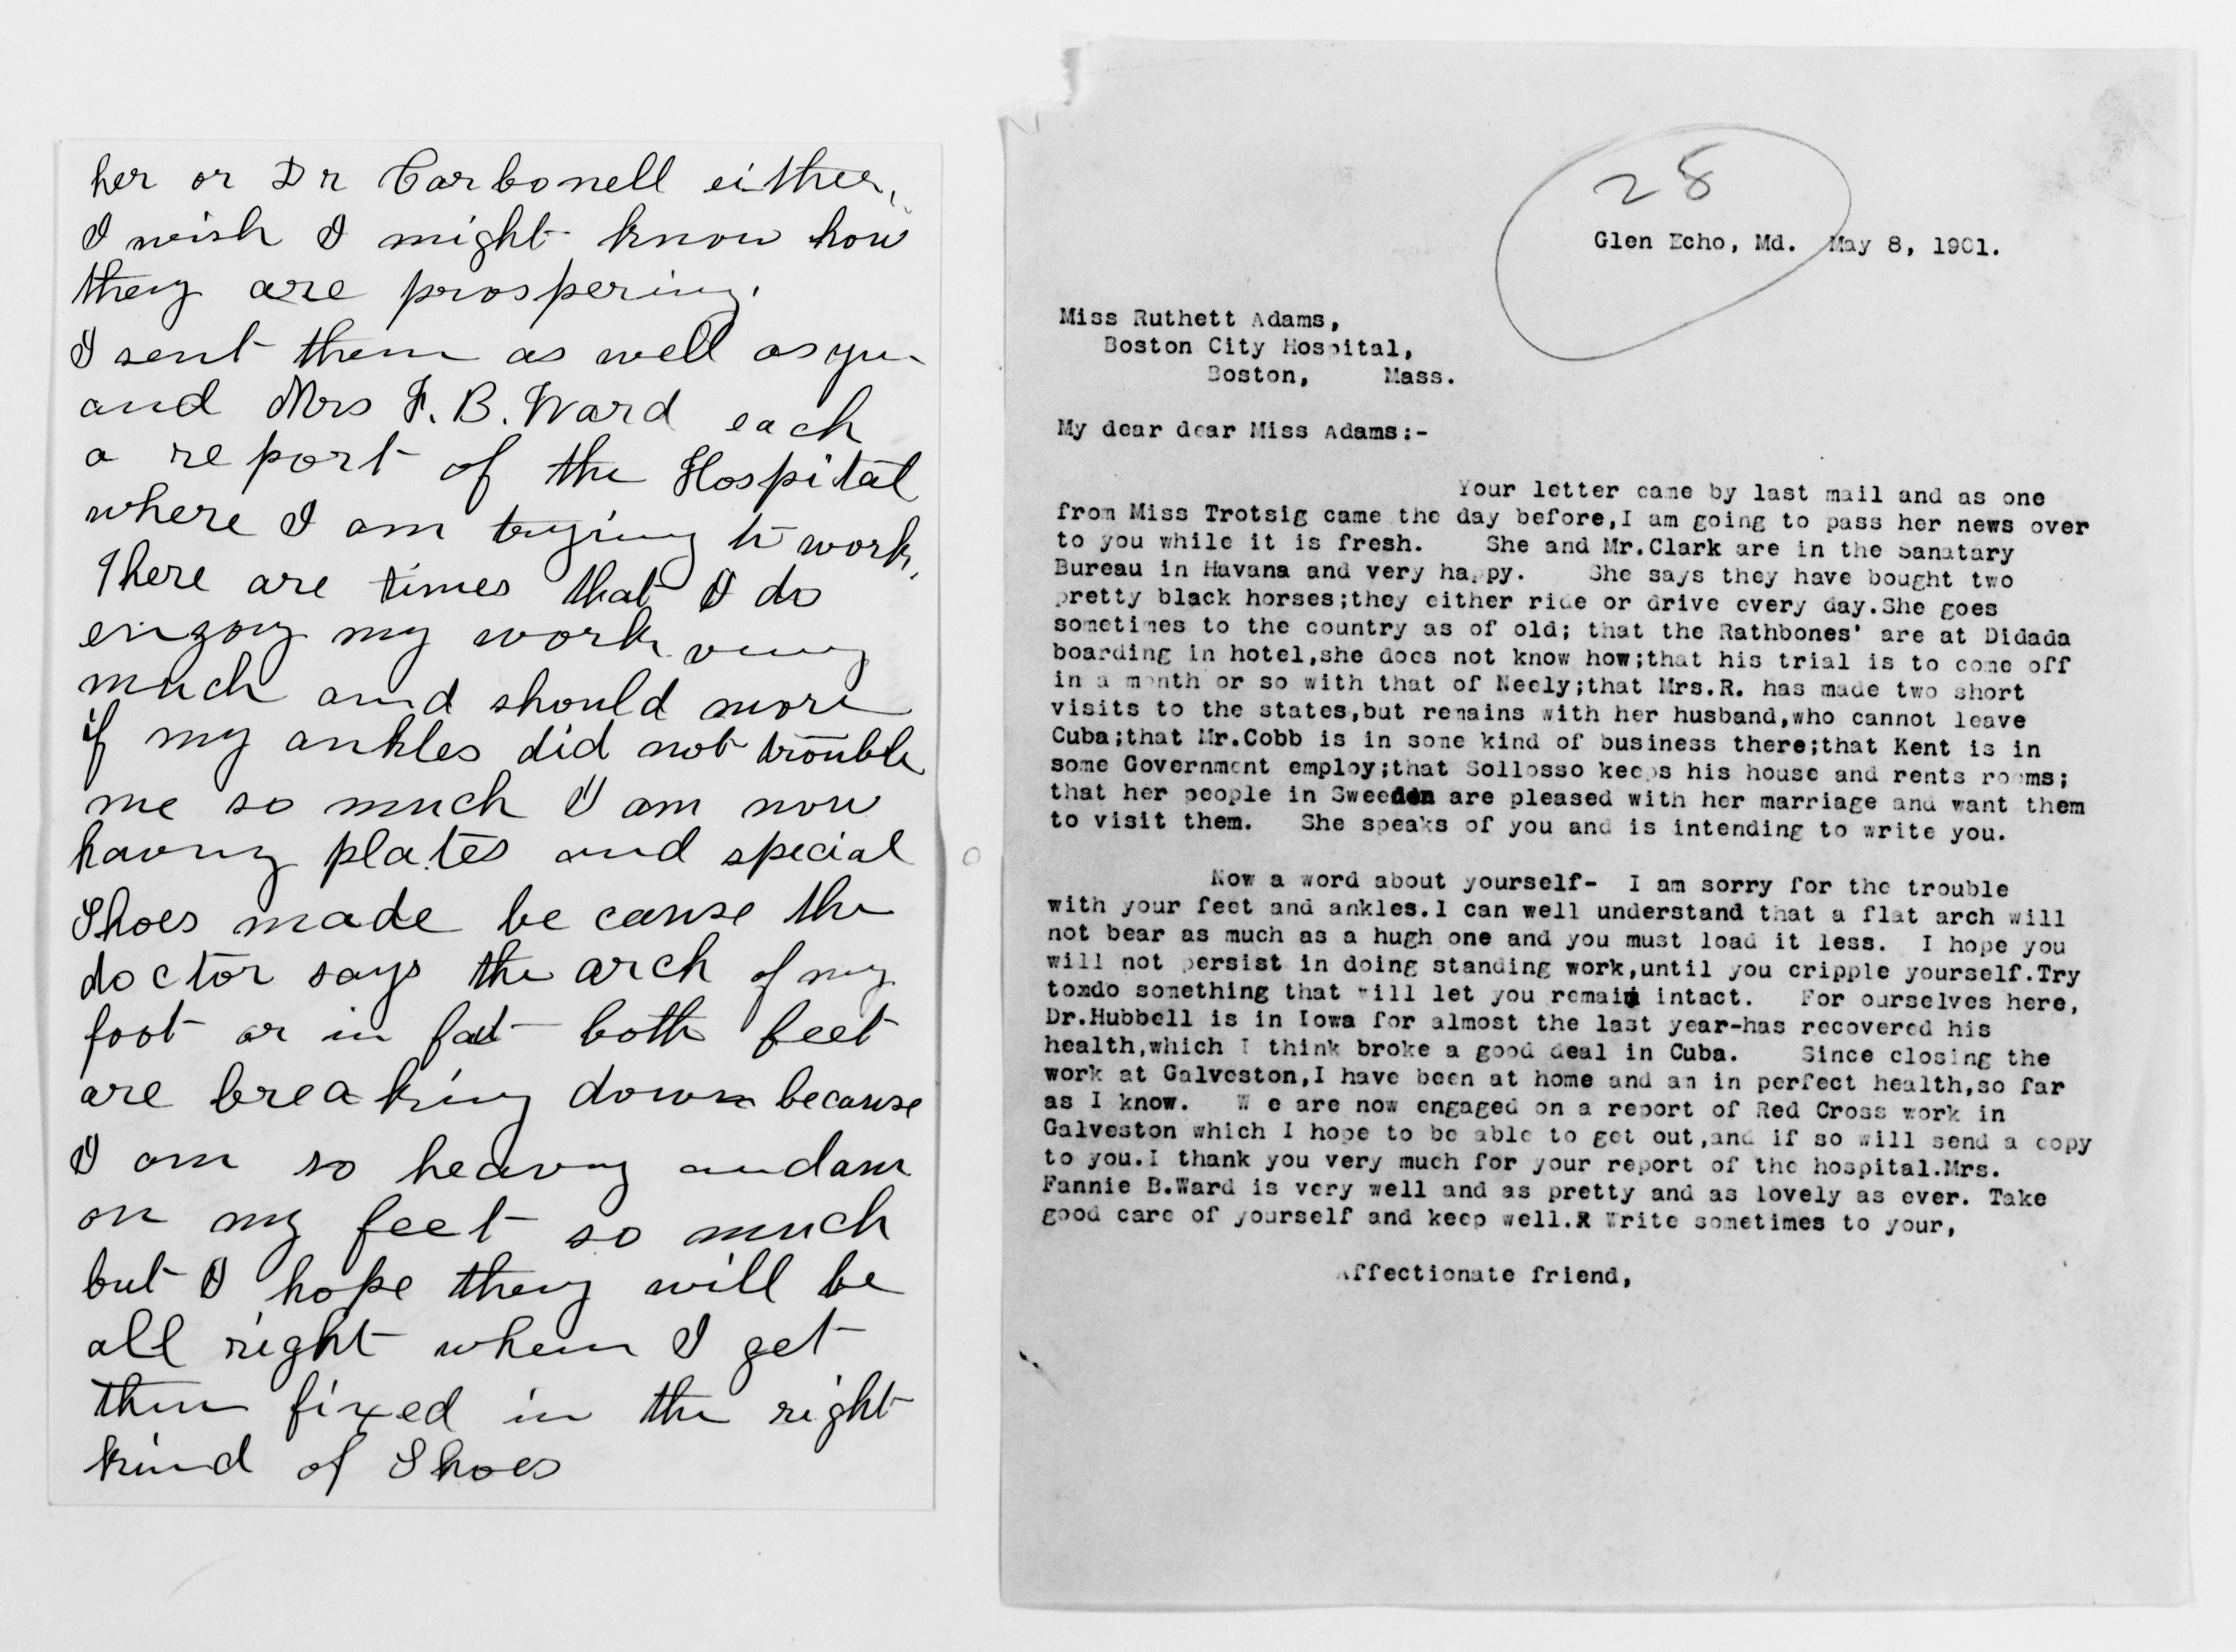 her or Dr Carbonell either,
I wish I might know how
they are prospering.
I sent them as well as you
and Mrs F. B. Ward each
a report of the Hospital
where I am trying to work,
There are times that I do
enjoy my work very
much and should more
if my ankles did not trouble
me so much I am now
having plates and special
Shoes made be cause the
doctor says the arch of my
foot or in fact both feet
are breaking down because
I am so heavy and am
on my feet so much
but I hope they will be
all right when I get
them fixed in the right
kind of Shoes
28
Glen Echo, Md. May 8, 1901.
Miss Ruthett Adams,
Boston City Hospital,
Boston, Mass.
My dear dear Miss Adams:-
Your letter came by last mail and as one
from Miss Trotsig came the day before,I am going to pass her news over
to you while it is fresh. She and Mr.Clark are in the Sanatary
Bureau in Havana and very happy. She says they have bought two
pretty black horses;they either ride or drive every day.She goes
sometimes to the country as of old; that the Rathbones' are at Didada
boarding in hotel,she does not know how;that his trial is to come off
in a month or so with that of Neely;that Mrs.R. has made two short
visits to the states,but remains with her husband,who cannot leave
Cuba;that Mr.Cobb is in some kind of business there;that Kent is in
some Government employ;that Sollosso keeps his house and rents rooms;
that her people in Sweeden are pleased with her marriage and want them
to visit them. She speaks of you and is intending to write you.
Now a word about yourself- I am sorry for the trouble
with your feet and ankles.I can well understand that a flat arch will
not bear as much as a hugh one and you must load it less. I hope you
will not persist in doing standing work,until you cripple yourself.Try
toxdo something that will let you remain intact. For ourselves here,
Dr.Hubbell is in Iowa for almost the last year-has recovered his
health,which I think broke a good deal in Cuba. Since closing the
work at Galveston,I have been at home and am in perfect health,so far
as I know. W e are now engaged on a report of Red Cross work in
Galveston which I hope to be able to get out,and if so will send a copy
to you.I thank you very much for your report of the hospital.Mrs.
Fannie B.Ward is very well and as pretty and as lovely as ever. Take
good care of yourself and keep well.X Write sometimes to your,
Affectionate friend,